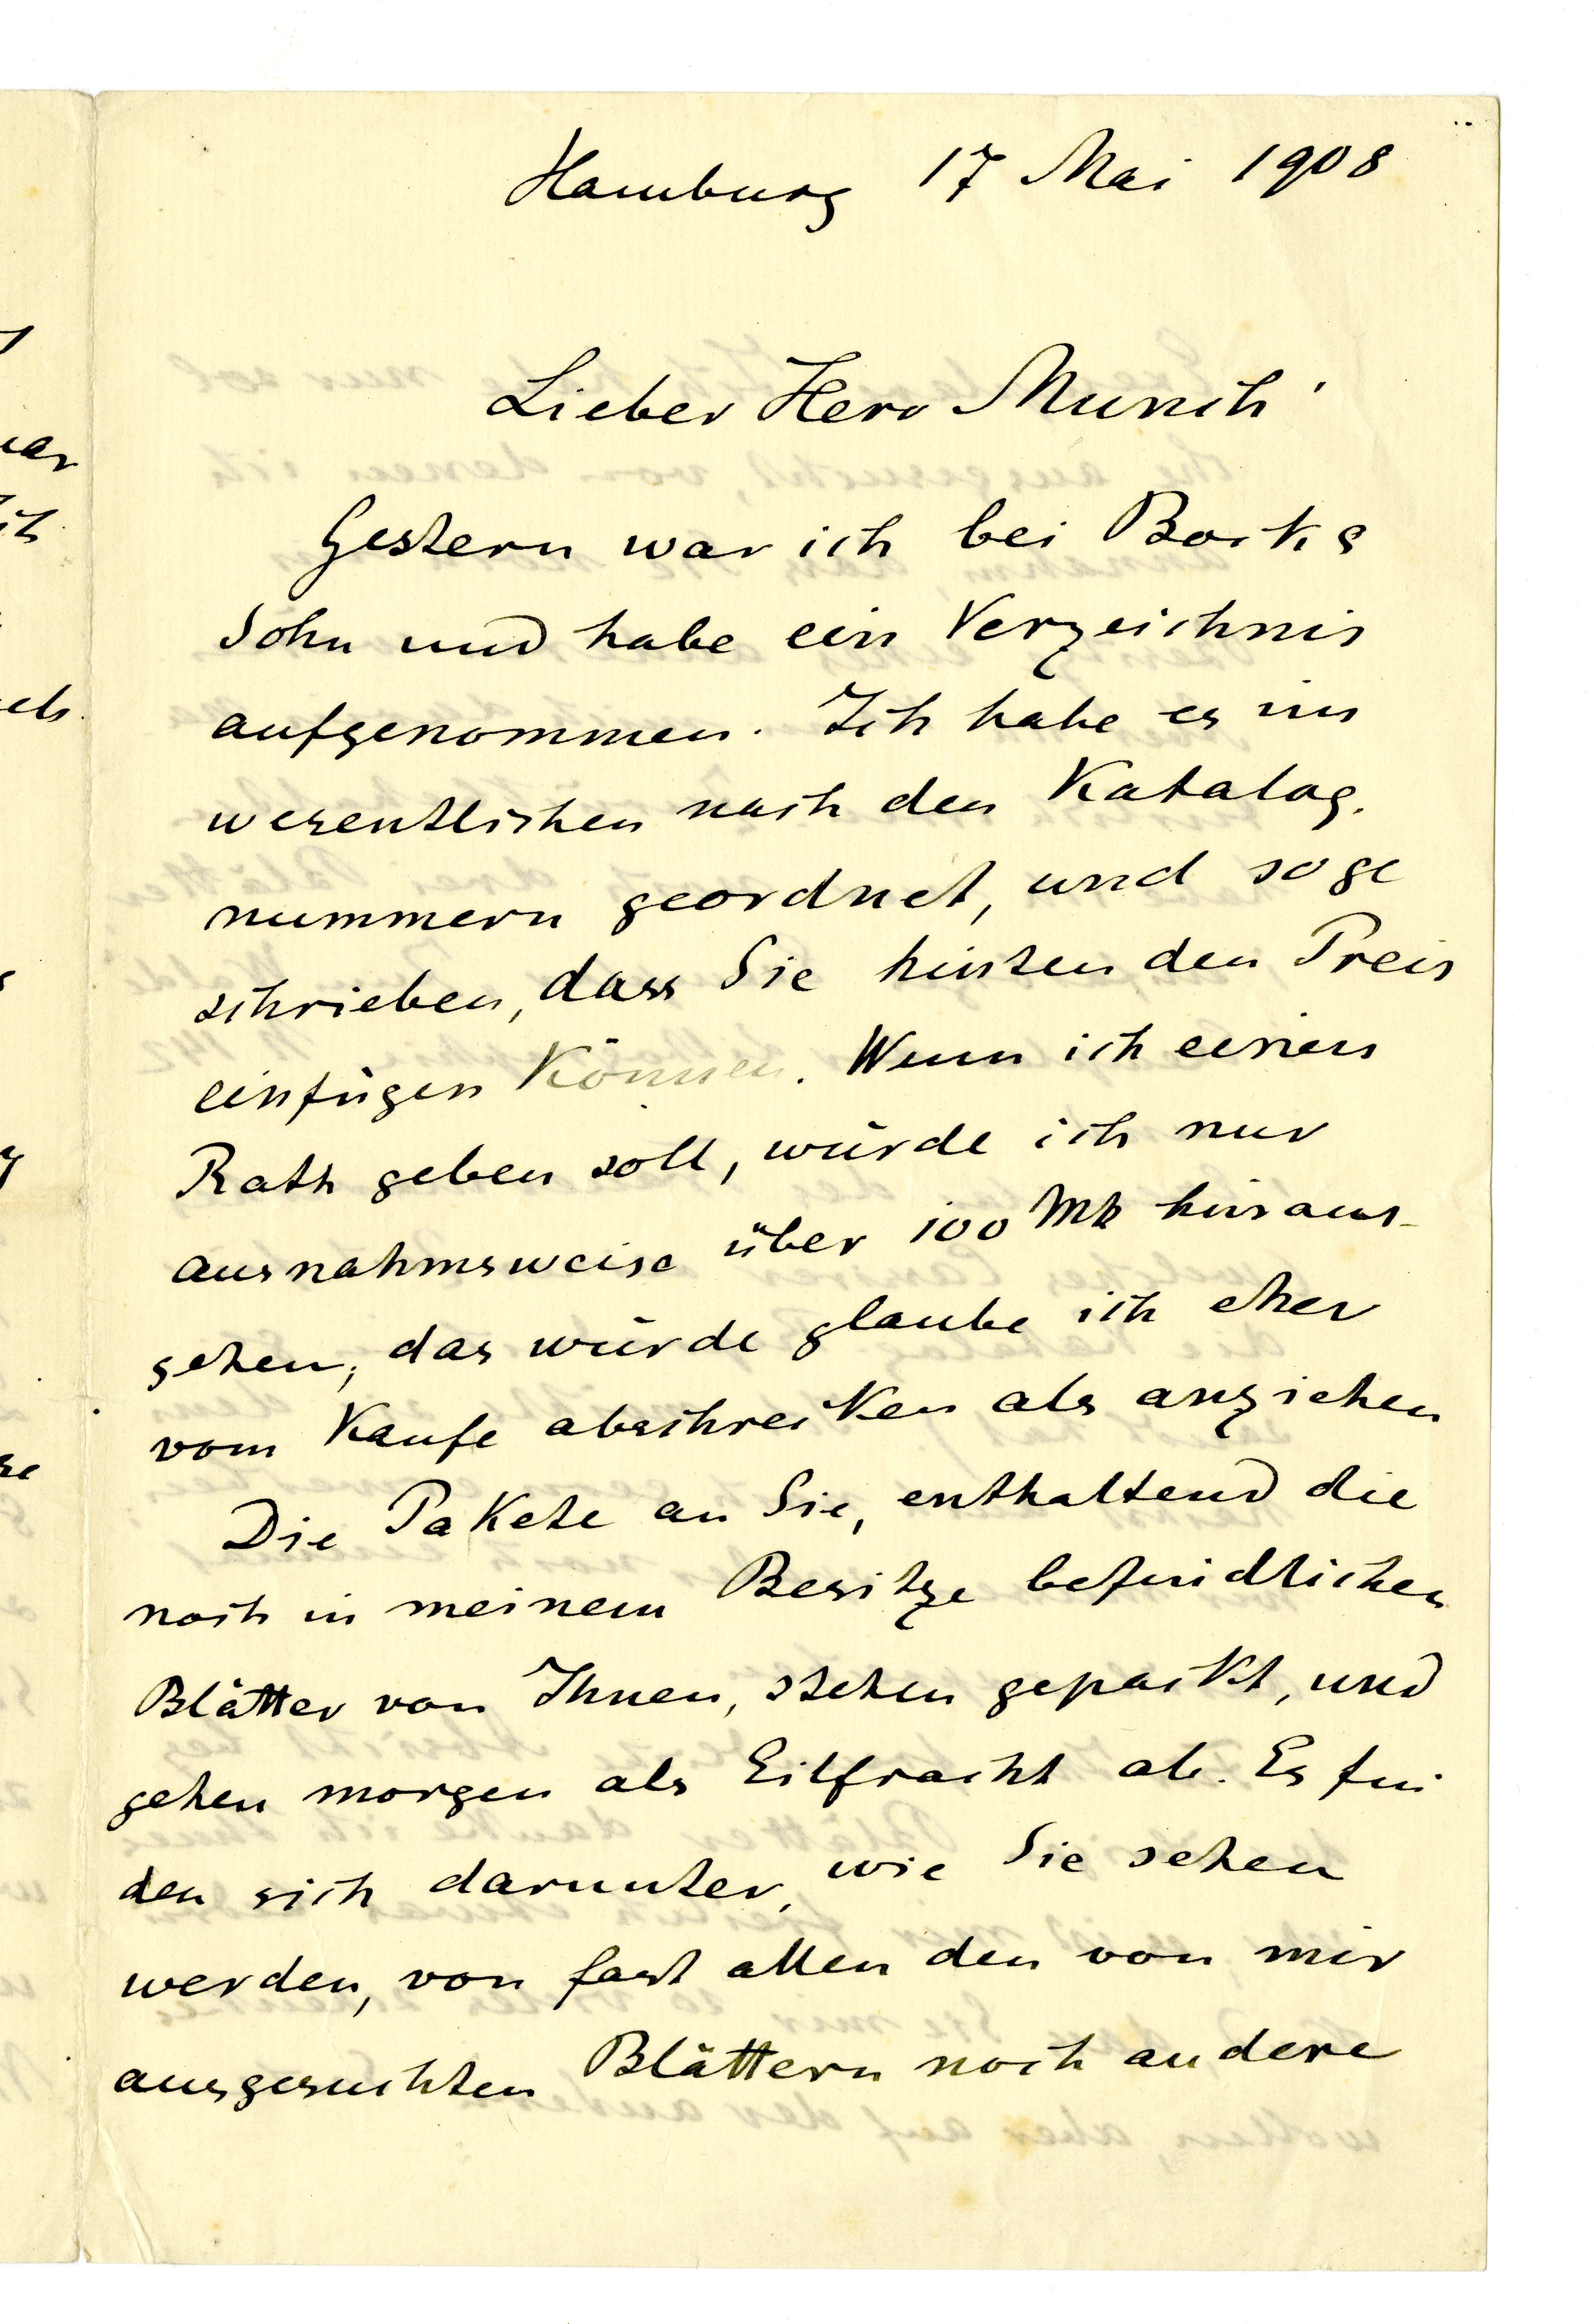 Hamburg 17 Mai 1908
Lieber Herr Munch!
Gestern war ich bei Bocks
Sohn und habe ein Verzeichnis
aufgenommen. Ich habe es im
wesentlichen nach den Katalog.
nummern geordnet, und so ge
schrieben, dass Sie hinten den Preis
einfügen können. Wenn ich einen
Rath geben soll, würde ich nur
ausnahmsweise über 100 Mk hinaus-
gehen; das würde glaube ich eher
vom Kaufe abschrecken als anziehen
Die Pakete an Sie, enthaltend die
noch in meinem Besitze befindlichen
Blätter von Ihnen, stehen gepackt, und
gehen morgen als Eilfracht ab. Es fin
den sich darunter, wie Sie sehen
werden, von fast allen den von mir
ausgesuchten Blättern noch andere